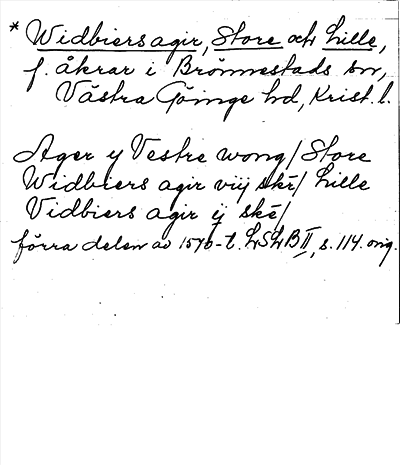 * Widbiersagir, Store och Lille,
f. åkrar i Brönnestads sn,
Västra Göinge hd, Krist. l.
Ager y Vestre wong/ Store
Widbiers agir viij skē/ Lille
Vidbiers agir ij skē/
förra delen av 1570-t. LSLB II, s. 114. orig.